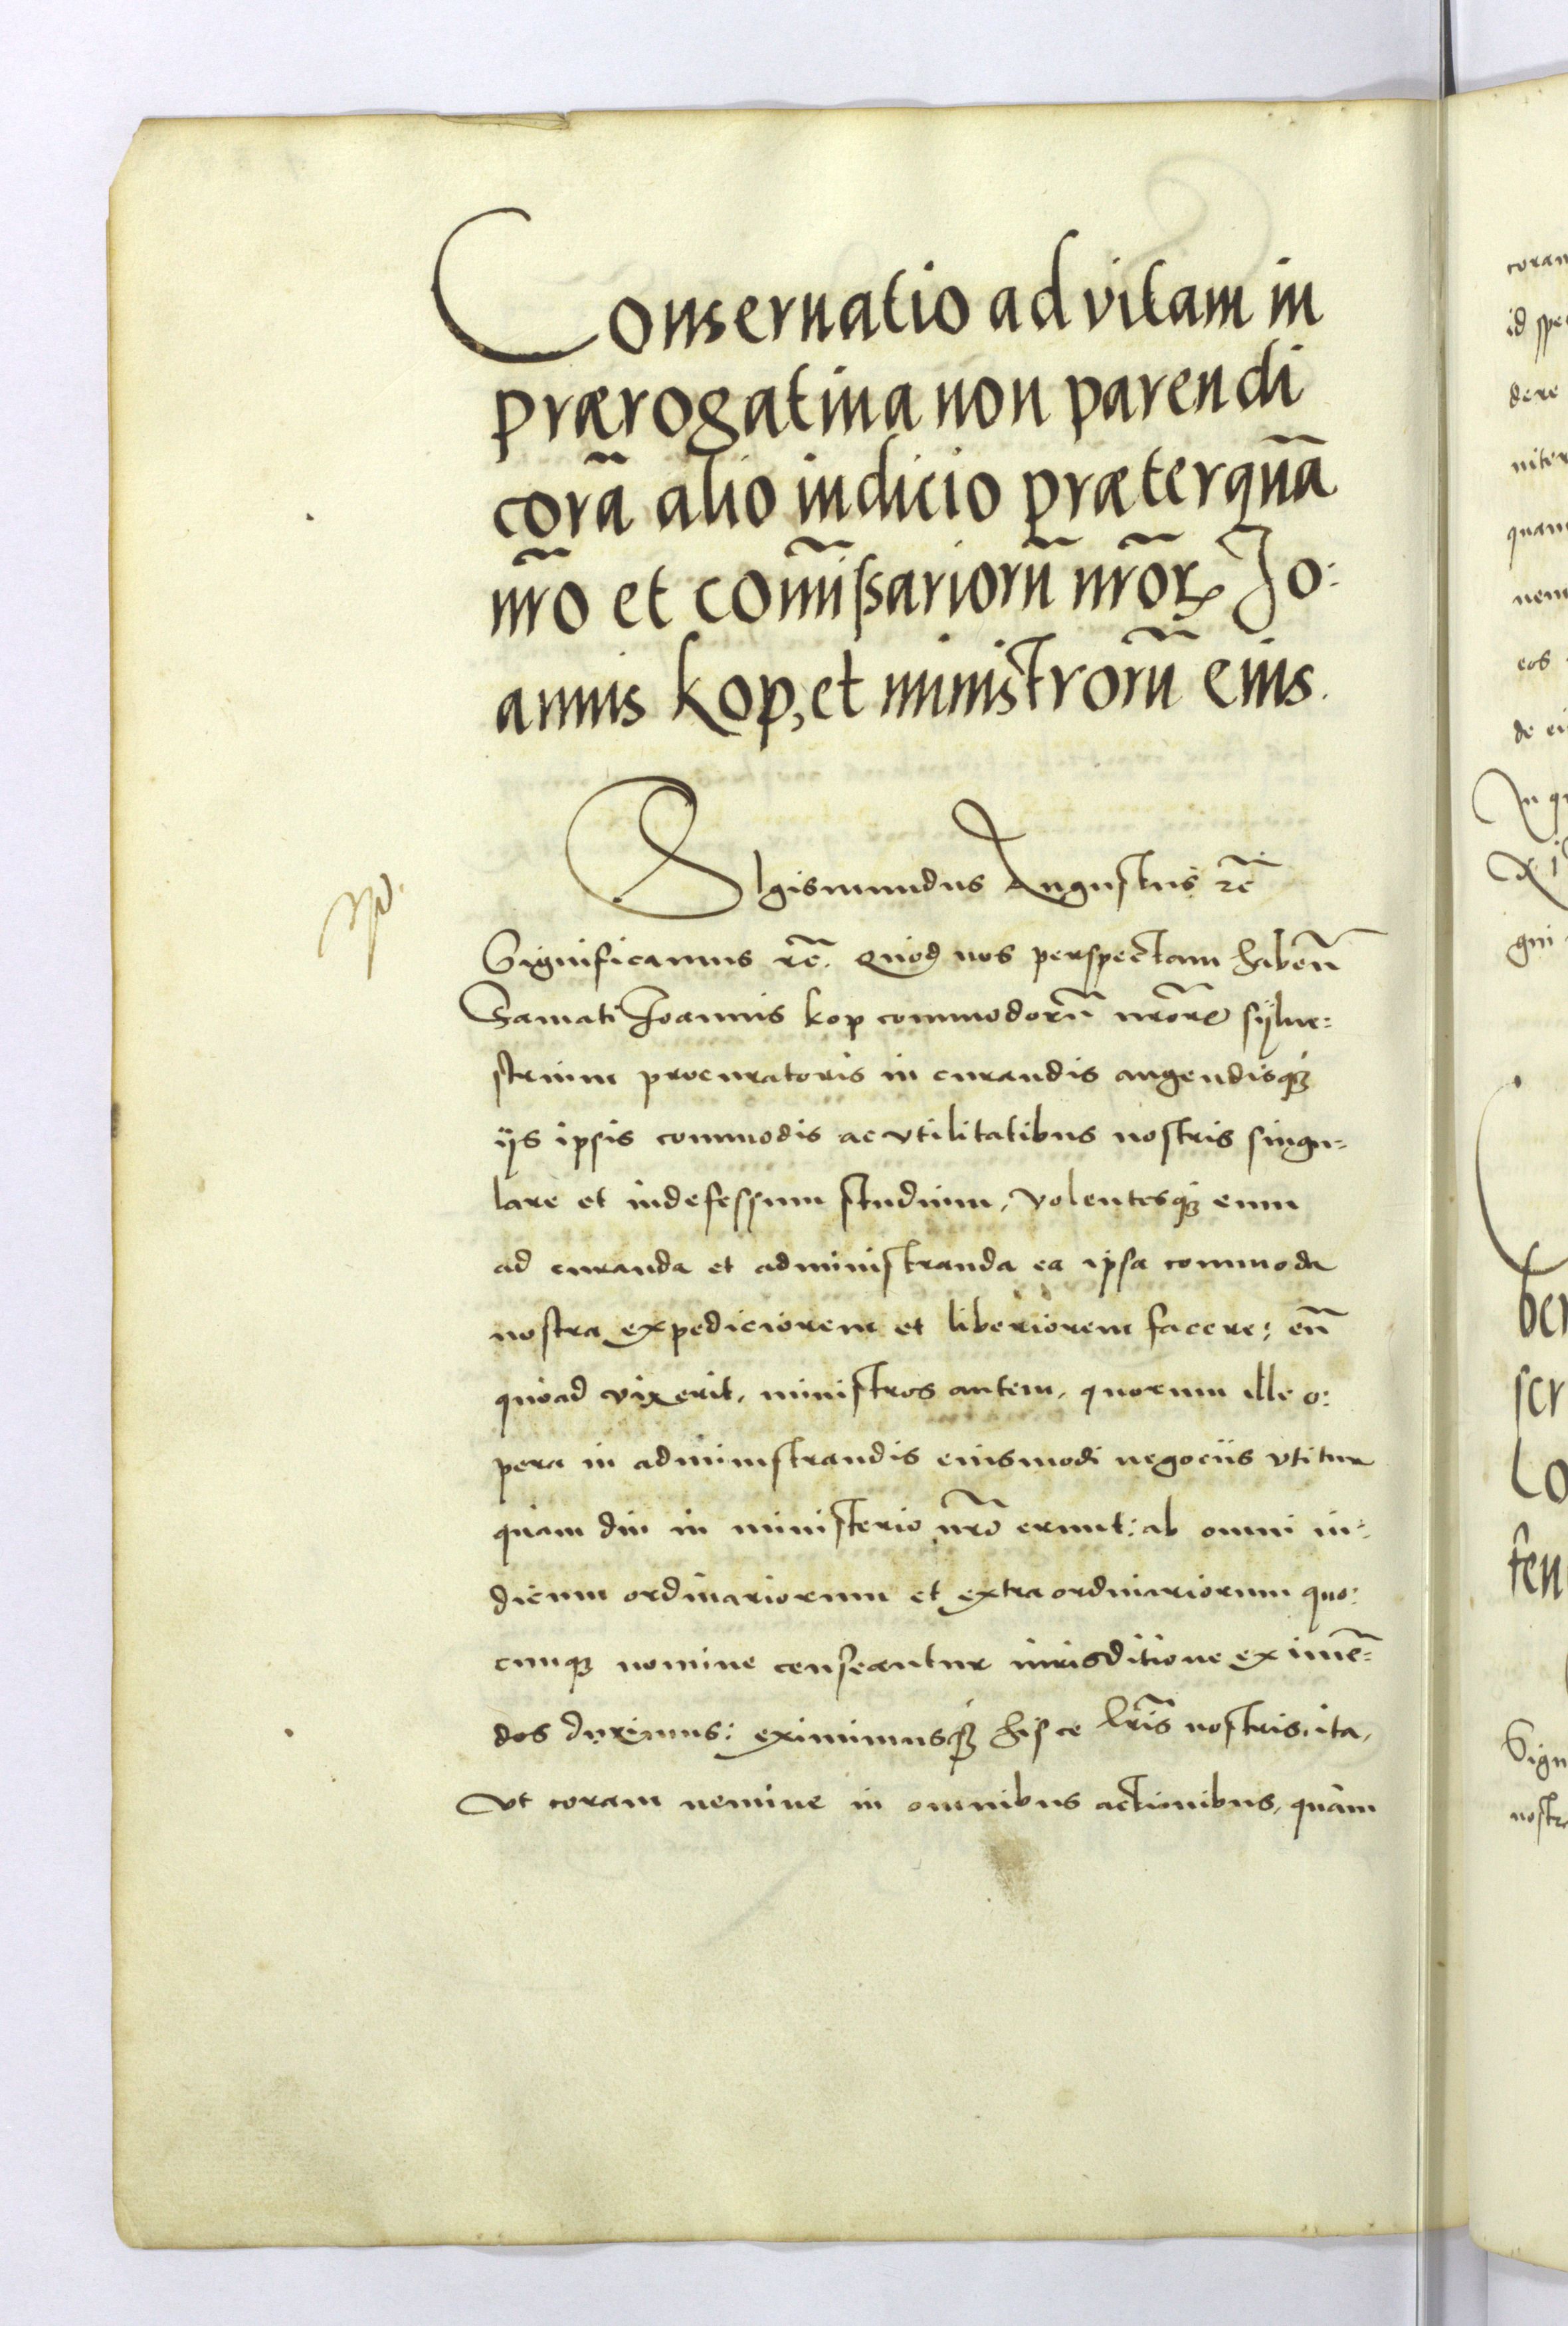 Conseruatio ad vitam in
prærogatiua non parendi
corã alio iudicio præterquã
nr̃o et com̃issariorũ nr̃oꝝ Jo:
annis kop, et ministrorũ eius.
SIgismundus Augustus rc̃
Significamus rc̃. Quod nos perspectam haben̄
Famati Joannis kop commodorũ nr̃orꝝ sylue=
strium procuratoris in curandis augendisqꝫ
ijs ipsis commodis ac vtilitatibus nostris singu=
lare et indefessum studium, volentesqꝫ eum
ad curanda et administranda ea ipsa commoda
nostra expediciorem et liberiorem facere: eũ
quoad vixerit, ministros autem, quorum ille o:
pera in administrandis eiusmodi negociis vtitur
quam diu in ministerio nr̃o erunt: ab omni iu=
dicum ordinariorum et extraordinariorum quo:
cunqꝫ nomine censeantur iurisditione eximẽ=
dos duximus: eximimusqꝫ hisce lr̃is nostris: ita,
vt coram nemine in omnibus actionibus, quàm
coram
id spe
dere
niter
quam
nem
eos
de ei
In q
gni
ber
scr
Lo
ten
Sign
nostr